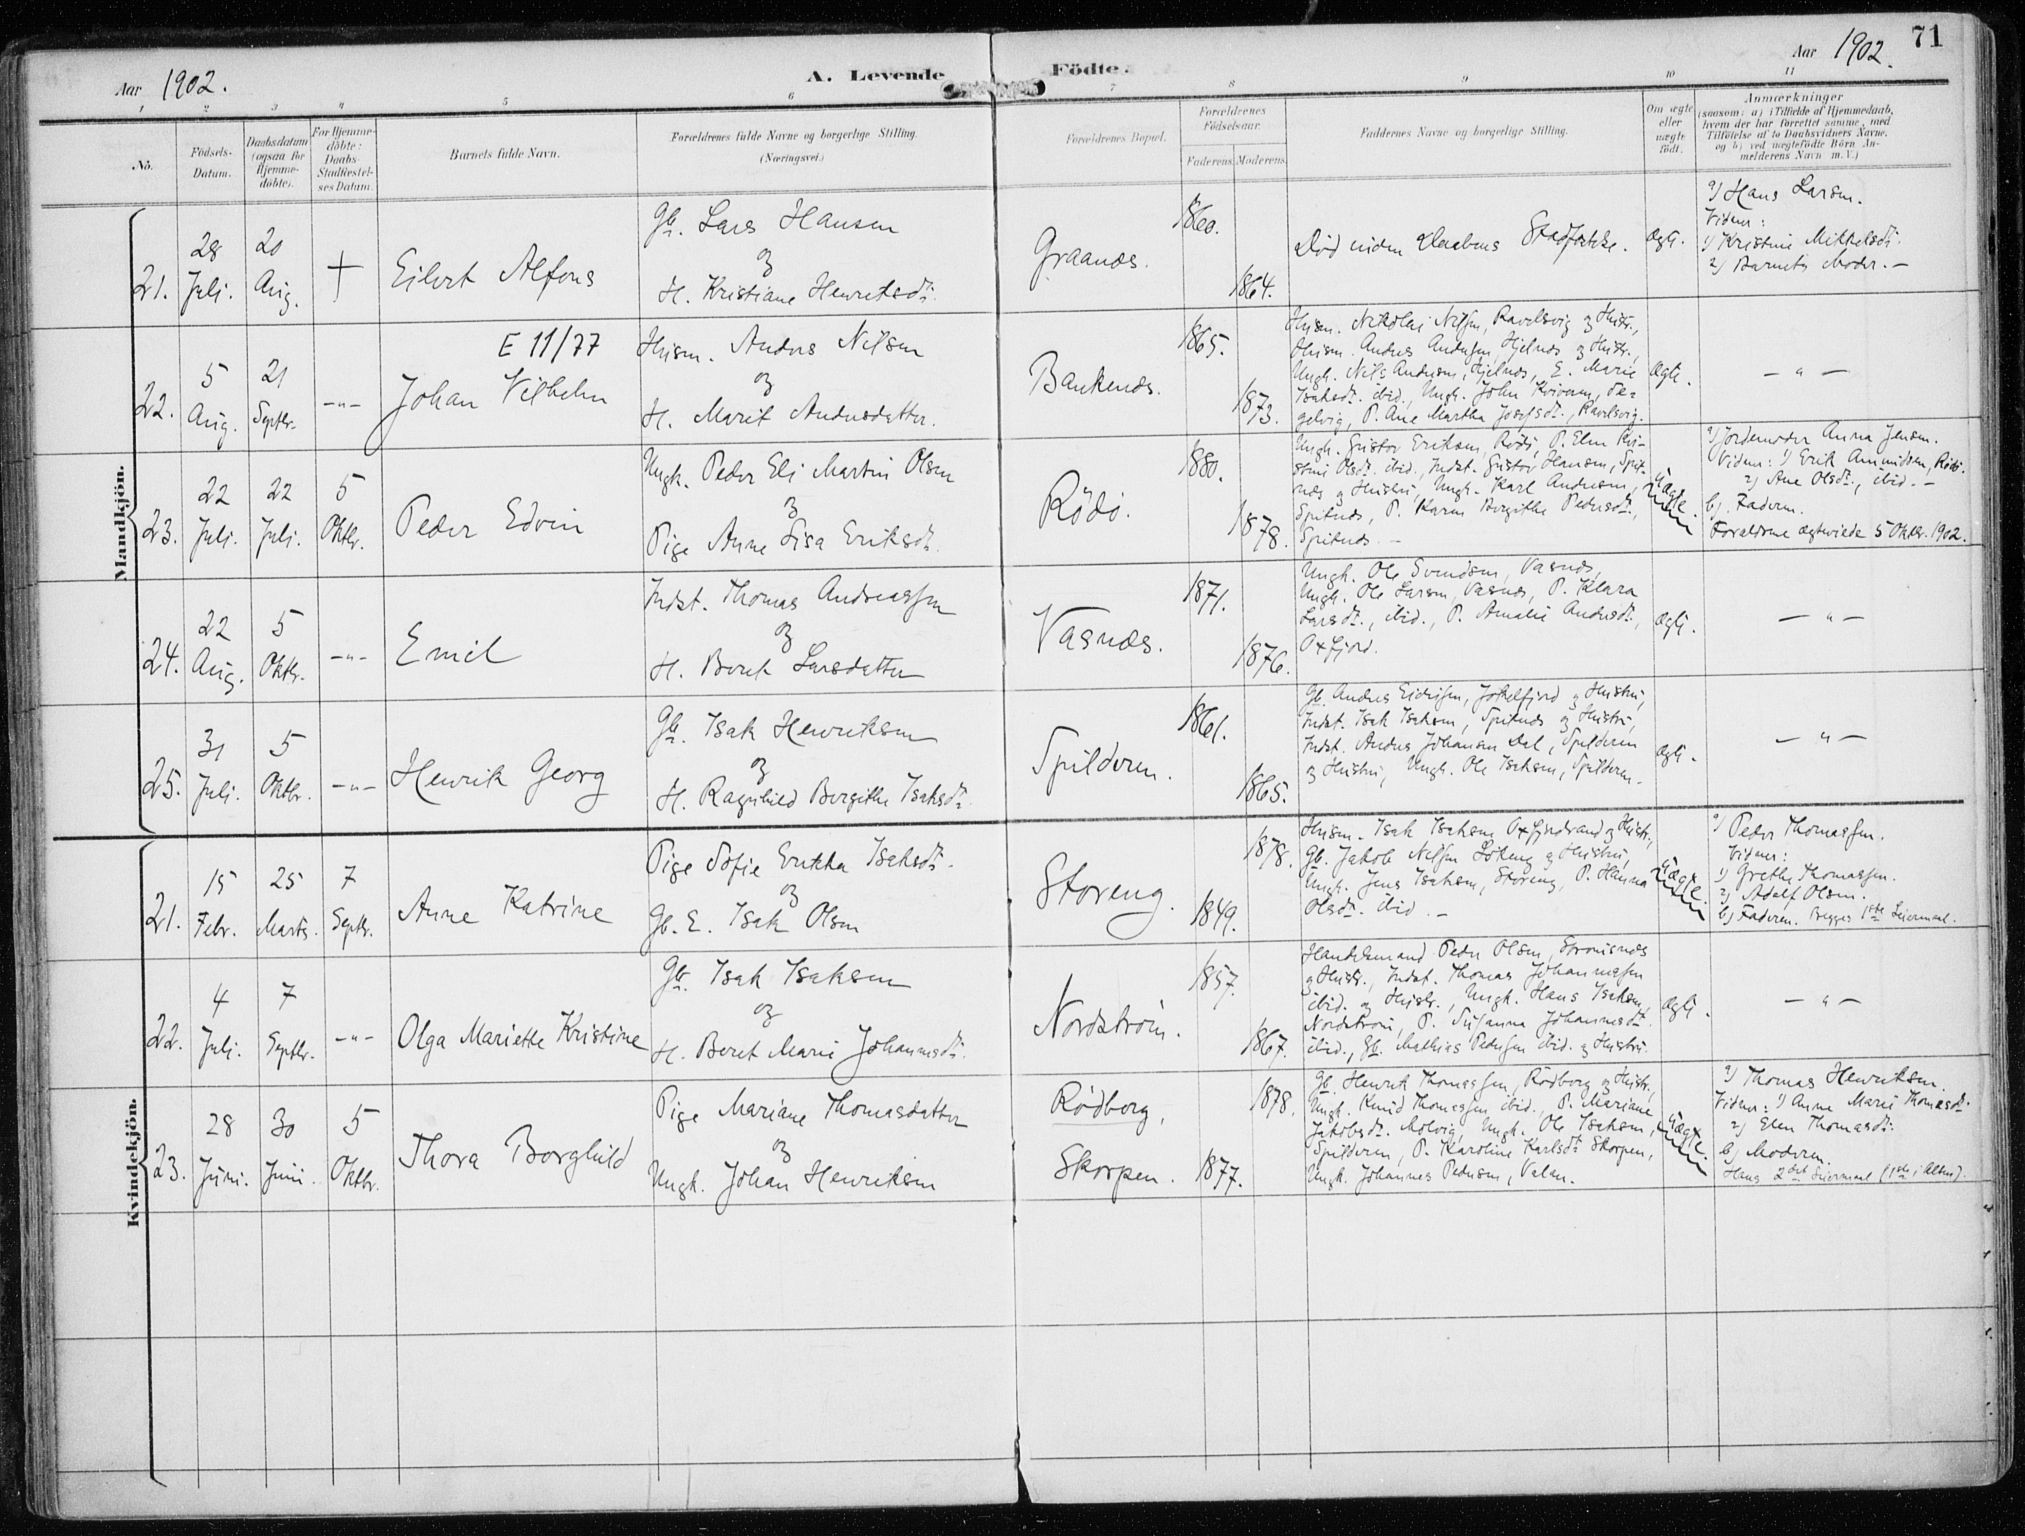 71
Aar 1902.
A. Levende Födte.
Aar 1902.
1 2 3 4 5 6 7 8 9 10 11
No.
Födsels-
Datum.
Daabsdatum
(ogsaa for
Hjemme-
döbte).
For Hjemme-
döbte:
Daabs-
Stadfæstel-
ses Datum.
Barnets fulde Navn.
Forældrenes fulde Navne og borgerlige Stilling.
(Næringsvei.)
Forældrenes Bopæl.
Forældrenes
Födselsaar.
Faderens. Moderens.
Faddernes Navne og borgerlige Stilling.
Om ægte
eller
uægte
födt.
Anmærkninger
(saasom: a) i Tilfælde af Hjemmedaab,
hvem der har forrettet samme, med
Tilföielse af to Daabsvidners Navne,
og b) ved uægtefödte Börn An-
melderens Navn m. V.)
Mandkjön.
21.
28
Juli.
20
Aug.
+
Eilert Alfons
Gb. Lars Hansen
og
H. Kristiane Henriksdt.
Graanæs.
1860.
1864.
Død inden Daabens Stadfæstelse.
Ægte.
a) Hans Larsen.
Vidner:
1) Kristine Mikkelsdt.
2) Barnets Moder. –
22.
5
Aug.
21
Septbr.
–"–
E 11/77
Johan Vilhelm
Husm. Anders Nilsen
og
H. Marit Andersdatter.
Bankenæs.
1865.
1873.
Husm. Nikolai Nilsen, Ravelsvig og Hustr.,
Husm. Anders Andersen, Hjelnæs og Hustr.,
Ungk. Nils Andersen, Hjelnæs, E. Marie
Isaksdt. ibid., Ungk. John
P. Ane Martha Josefsdt., Ravelsvig.
Ægte.
– " –
23.
22
Juli.
22
Juli.
5
Oktbr.
Peder Edvin
Ungk. Peder Eli Martin Olsen
og
Pige Anne Lisa Eriksdt.
Rödö.
1880.
1878.
Ungk. Gustav Eriksen, Rödö, P. Elen Kri-
stine Olsdt. ibid., Indst. Gustav Hansen, Spit-
næs og Hustru, Ungk. Karl Andersen,
Spitnæs, P. Karen Bergithe Pedersdt.,
Spitnæs. –
Uægte.
a) Jordemoder Anna Jensen.
Vidner: 1) Erik Amundsen, Rödö.
2) Ane Olsdt., ibid. –
b) Faderen.
Forældrene ægteviede 5 Oktbr. 1902.
24.
22
Aug.
5
Oktbr.
–"–
Emil
Indst. Thomas Andreassen
og
H. Beret Larsdatter
Vasnæs.
1871.
1876.
Ungk. Ole Svendsen, Vasnæs,
Ungk. Ole Larsen, Vasnæs, P. Klara
Larsdt., ibid., P. Amalie Andersdt.,
Oxfjord.
Ægte.
– " –
25.
31
Juli.
5
Oktbr.
–"–
Henrik Georg
Gb. Isak Henriksen
og
H. Ragnhild Bergithe Isaksdt.
Spilderen.
1861.
1865.
Gb. Anders Eidissen, Jøkelfjord og Hustru,
Indst. Isak Isaksen, Spitnæs og Hustru,
Indst. Anders Johansen Dal, Spilderen
og Hustru, Ungk. Ole Isaksen, Spilderen. –
Ægte.
– " –
Kvindekjön.
21.
15
Febr.
25
Marts.
7
Septbr.
Anne Katrine
Pige Sofie Erikka Isaksdt.
og
Gb. E. Isak Olsen
Storeng.
1878.
1849.
Husm. Isak Isaksen Oxfjordstrand og Hustr.,
Gb. Jakob Nilsen og Hustru,
Ungk. Jens Isaksen, Storeng, P. Hanna
Olsdt. ibid. –
Uægte.
a) Peder Thomassen.
Vidner:
1) Grethe Thomassen.
2) Adolf Olsen.
b) Faderen. Begges 1ste Leiermaal.
22.
4
Juli.
7
Septbr.
–"–
Olga Mariette Kristine
Gb. Isak Isaksen
og
H. Beret Marie Johannesdt.
Nordström.
1857.
1867.
Handelsmand Peder Olsen,
og Hustr., Indst. Thomas Johannessen
ibid. og Hustr., Ungk. Hans Isaksen,
Nordström, P. Susanna Johannesdt.
ibid., Gb. Mathias Pedersen ibid. og Hustru.
Ægte.
– " –
23.
28
Juni.
30
Juni.
5
Oktbr.
Thora Borghild
Pige Mariane Thomasdatter
og
Ungk. Johan Henriksen
Rödborg,
Skorpen.
1878.
1877.
Gb. Henrik Thomassen, Rödborg og Hustr.,
Ungk. Knud Thomassen ibid., P. Mariane
Jakobsdt. Molvig, Ungk. Ole Isaksen,
Spilderen, P. Karoline Karlsdt. Skorpen,
Ungk. Johannes Pedersen, Valan.
Uægte.
a) Thomas Henriksen.
Vidner: 1) Anne Marie Thomasdt.
2) Elen Thomasdt.
b) Moderen.
Hans 2det Leiermaal (1ste i Alten).